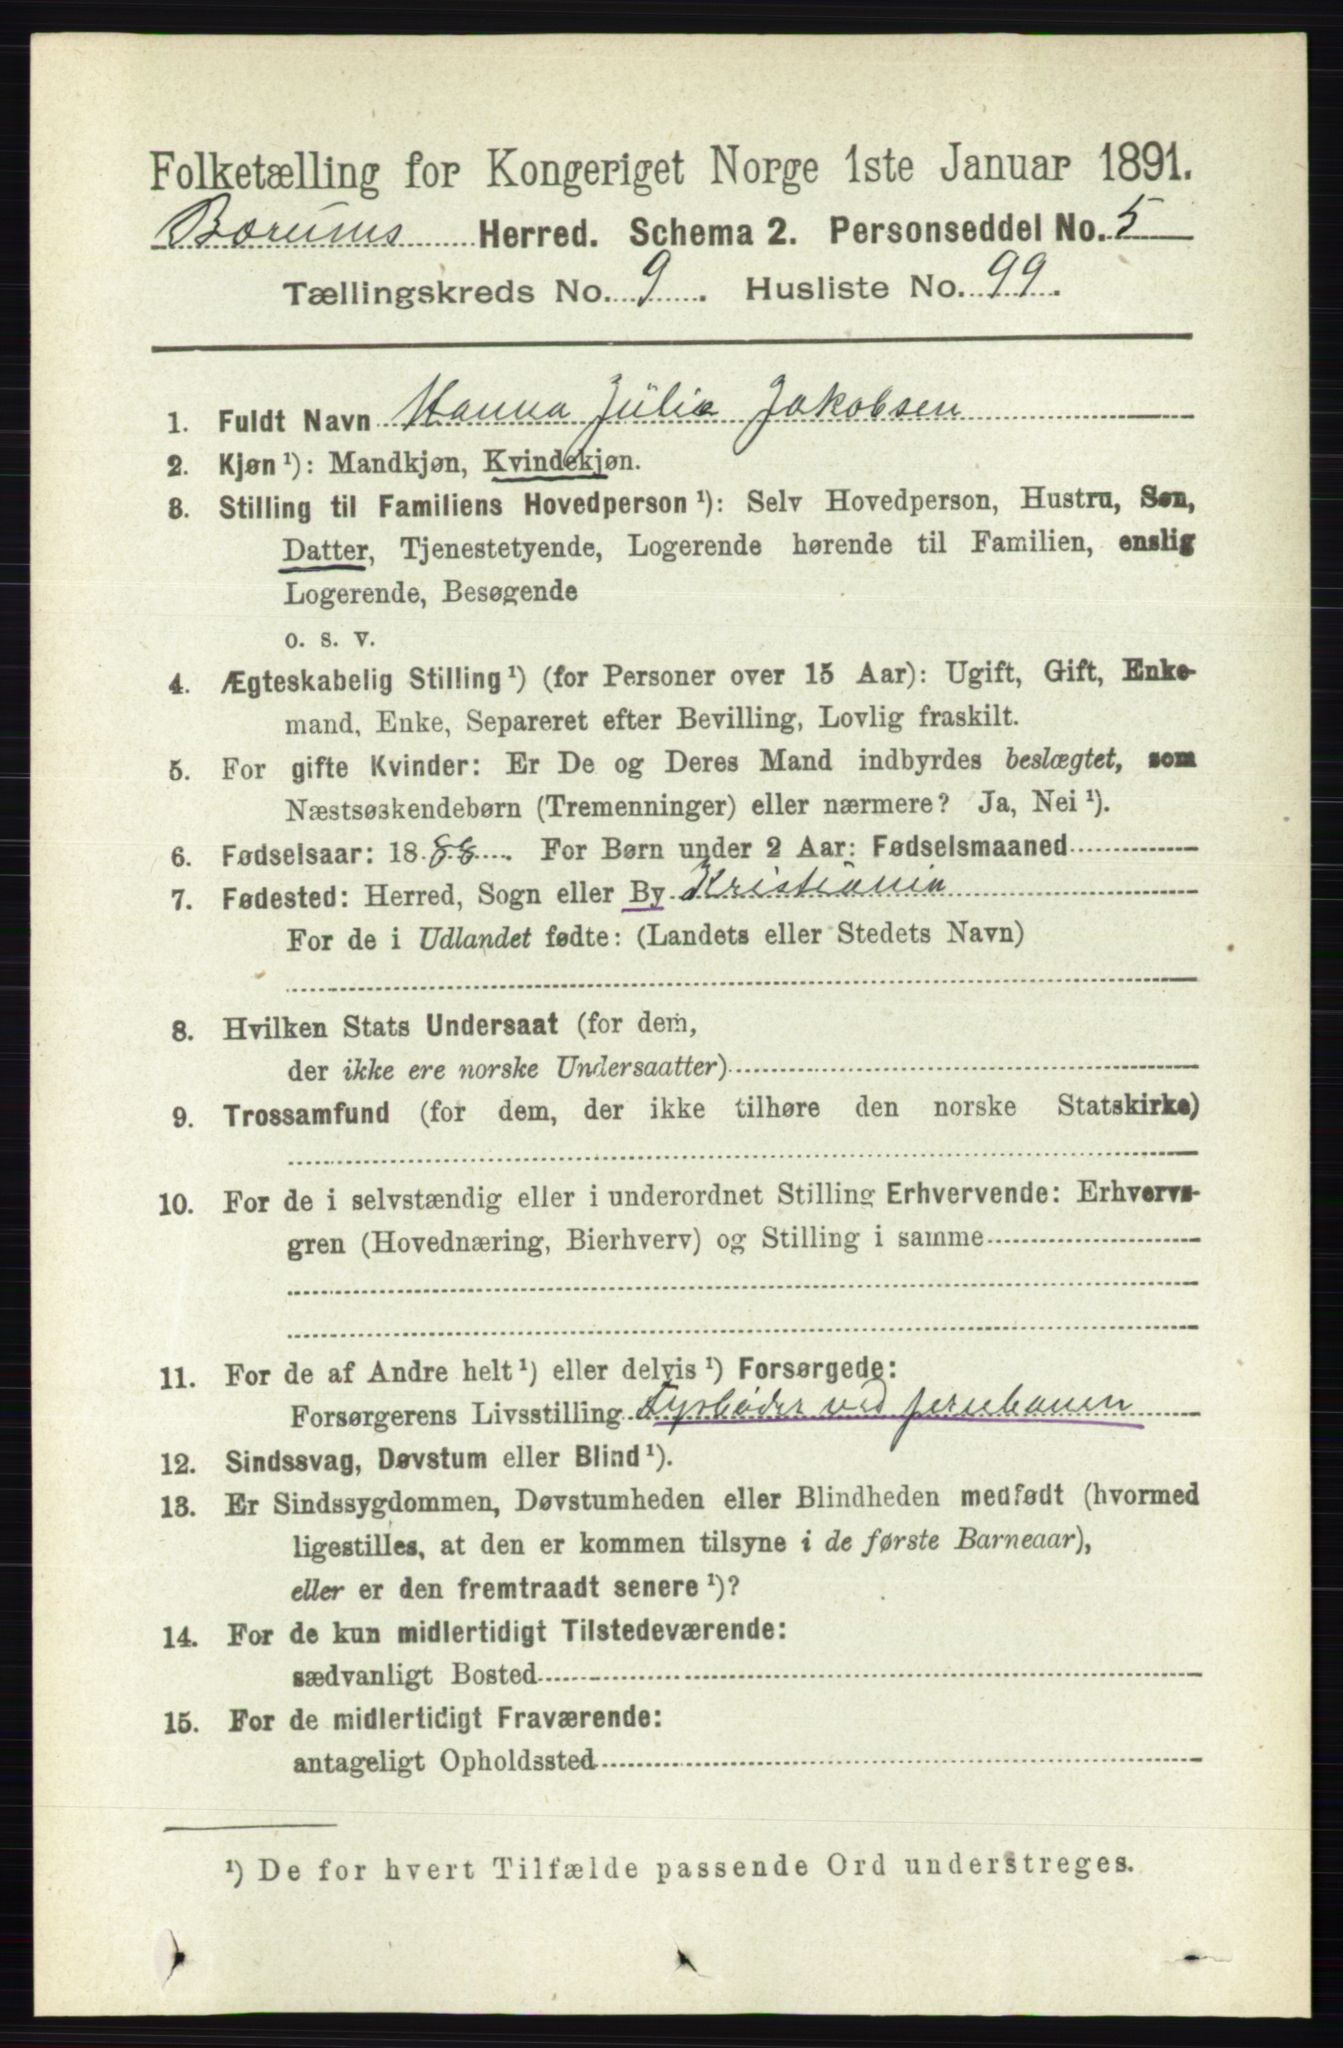 Folketælling for Kongeriget Norge 1ste Januar 1891.
Bærums Herred. Schema 2. Personseddel No. 5
Tællingskreds No. 9. Husliste No. 99.
1. Fuldt Navn Hanna Julie Jakobsen
2. Kjøn ¹): Mandkjøn, Kvindekjøn.
3. Stilling til Familiens Hovedperson ¹): Selv Hovedperson, Hustru, Søn,
Datter, Tjenestetyende, Logerende hørende til Familien, enslig
Logerende, Besøgende
o. s. v.
4. Ægteskabelig Stilling ¹) (for Personer over 15 Aar): Ugift, Gift, Enke-
mand, Enke, Separeret efter Bevilling, Lovlig fraskilt.
5. For gifte Kvinder: Er De og Deres Mand indbyrdes beslægtet, som
Næstsøskendebørn (Tremenninger) eller nærmere? Ja, Nei ¹).
6. Fødselsaar: 1888. For Børn under 2 Aar: Fødselsmaaned
7. Fødested: Herred, Sogn eller By Kristiania
For de i Udlandet fødte: (Landets eller Stedets Navn)
8. Hvilken Stats Undersaat (for dem,
der ikke ere norske Undersaatter)
9. Trossamfund (for dem, der ikke tilhøre den norske Statskirke)
10. For de i selvstændig eller i underordnet Stilling Erhvervende: Erhvervs-
gren (Hovednæring, Bierhverv) og Stilling i samme
11. For de af Andre helt ¹) eller delvis ¹) Forsørgede:
Forsørgerens Livsstilling Fyrbøder ved jernbanen
12. Sindssvag, Døvstum eller Blind ¹).
13. Er Sindssygdommen, Døvstumheden eller Blindheden medfødt (hvormed
ligestilles, at den er kommen tilsyne i de første Barneaar),
eller er den fremtraadt senere ¹)?
14. For de kun midlertidigt Tilstedeværende:
sædvanligt Bosted
15. For de midlertidigt Fraværende:
antageligt Opholdssted
¹) De for hvert Tilfælde passende Ord understreges.